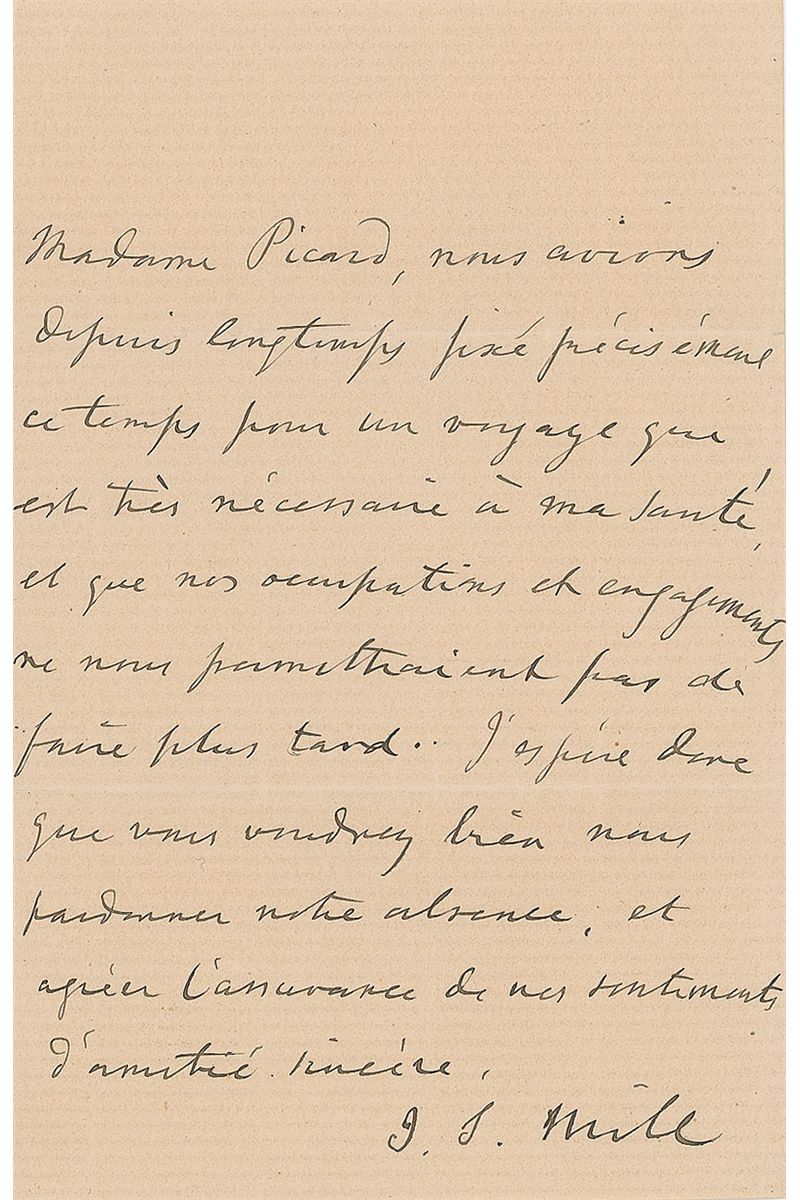 Madame Picard, nous avions
depuis longtemps fixé précisément
ce temps pour un voyage qui
est très nécessaire à ma santé,
et que nos occupations et engagements
ne nous permettraient pas de
faire plus tard.. J'espère donc
que vous voudrez bien nous
pardonner notre absence, et
agréer l'assurance de nos sentiments
d'amitié sincère.
J. S. Mill